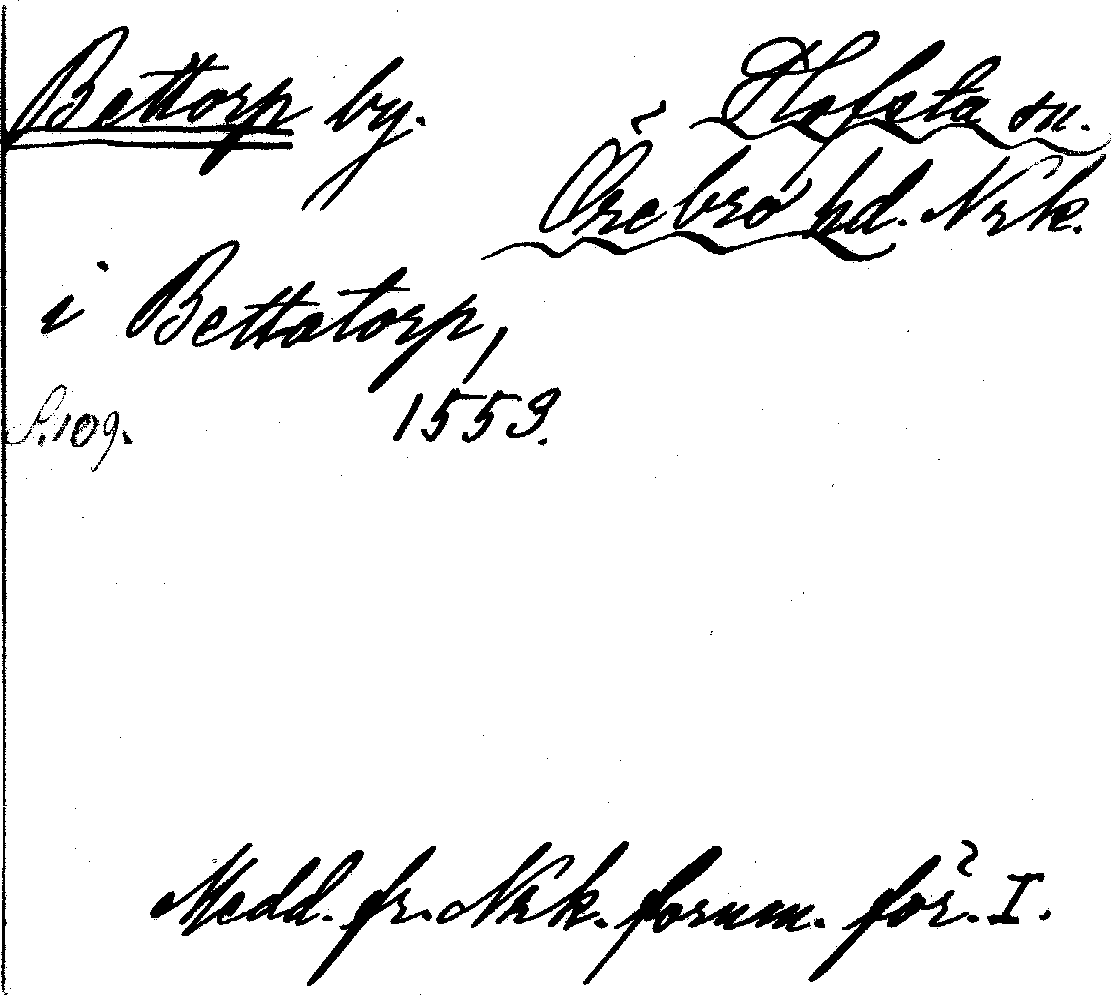 Bettorp by. Hofsta sn.
Örebro hd. Nrk.
i Bettatorp,
S. 109. 1553.
Medd. fr. Nrk. fornm. för. I.